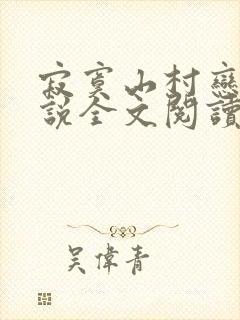 寂寞山村戀
說全文閱讀
吳偉青